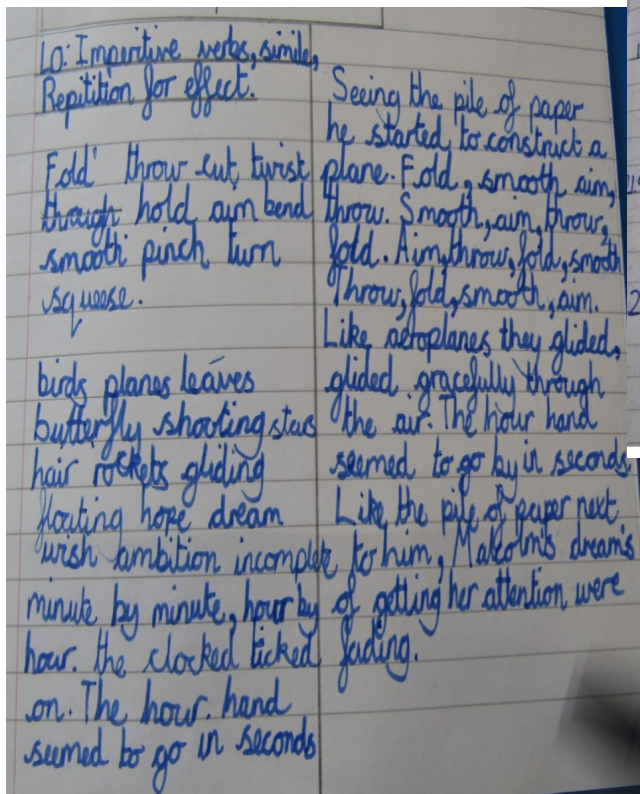 Lo: Imperitive verbs, simile,
Repitition for effect.
Fold throw cut twist
though hold aim bend
smooth pinch turn
squeese.
birds planes leaves
butterfly shooting stars
hair rockets gliding
floating hope dream
wish ambition incomplete
minute by minute, hour by
hour. the clocked ticked
on. The hour hand
seemed to go in seconds
Seeing the pile of paper
he started to construct a
plane. Fold, smooth aim,
throw. Smooth, aim, throw,
fold. Aim, throw, fold, smooth
Throw, fold, smooth, aim.
Like aeroplanes they glided,
glided gracefully through
the air. The hour hand
seemed to go by in seconds.
Like the pile of paper next
to him, Malcolm's dream's
of getting her attention were
fading.